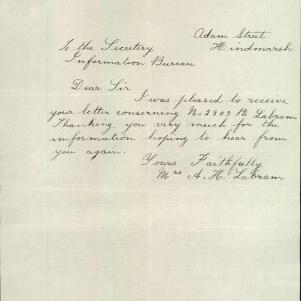 Adam Street
Hindmarsh
To the Secretery
Information Bureau
Dear Sir
I was pleased to receive
your letter conserning No 2809 Labram
Thanking you very much for the
information hoping to hear from
you again.
Yours Faithfully
Mrs A. H. Labram